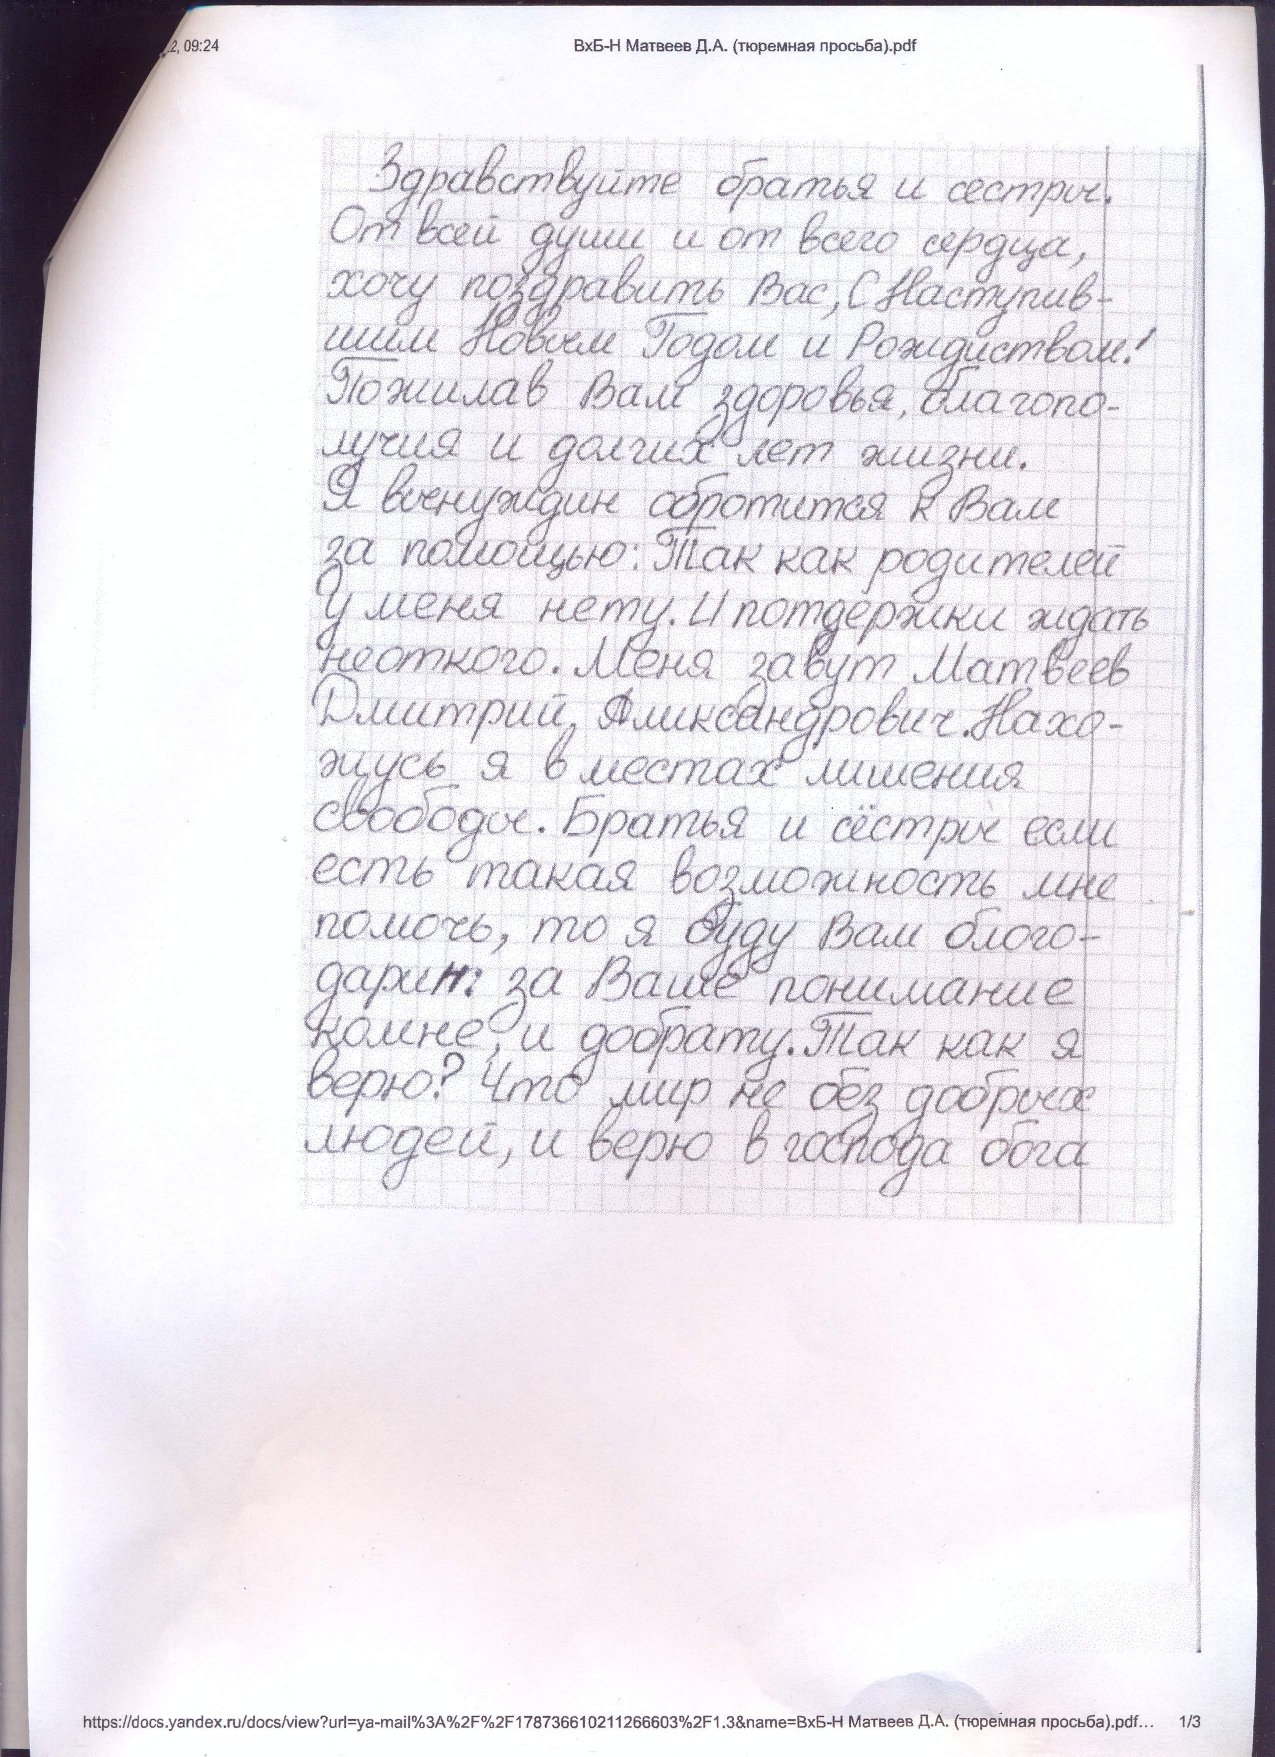 2, 09:24
ВхБ-Н Матвеев Д.А. (тюремная просьба).pdf
Здравствуйте братья и сестры.
От всей души и от всего сердца,
хочу поздравить Вас, С Наступив-
шим Новым Годом и Рождиством!
Пожилав Вам здоровья, благопо-
лучия и долгих лет жизни.
Я вынуждин обротится к Вам
за помощью: Так как родителей
У меня нету. И потдержки ждать
неоткого. Меня завут Матвеев
Дмитрий, Аликсандрович. Нахо-
жусь я в местах лишения
свободы. Братья и сёстры если
есть такая возможность мне
помочь, то я буду Вам блого-
дарин: за Ваше понимание
комне, и добрату. Так как я
верю? Что мир не без добрых
людей, и верю в господа бога
https://docs.yandex.ru/docs/view?url=ya-mail%3A%2F%2F178736610211266603%2F1.3&name=ВхБ-Н Матвеев Д.А. (тюремная просьба).pdf… 1/3